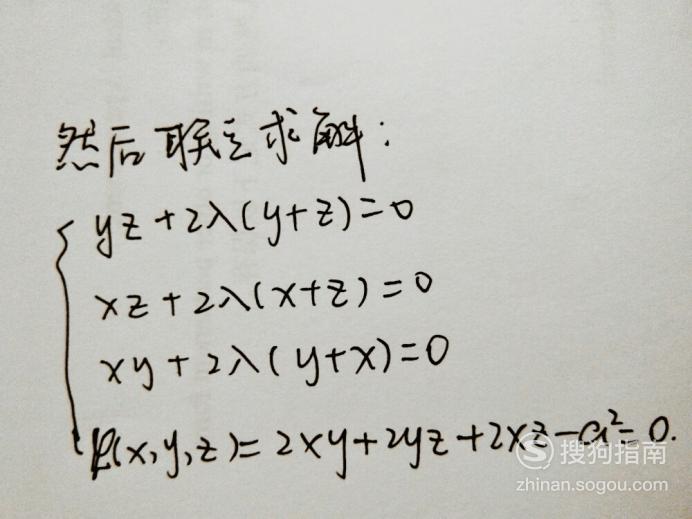 然后联立求解:
yz+2λ(y+z)=0
xz+2λ(x+z)=0
xy+2λ(y+x)=0
φ(x,y,z)=2xy+2yz+2xz-a²=0.
搜狗指南
zhinan.sogou.com